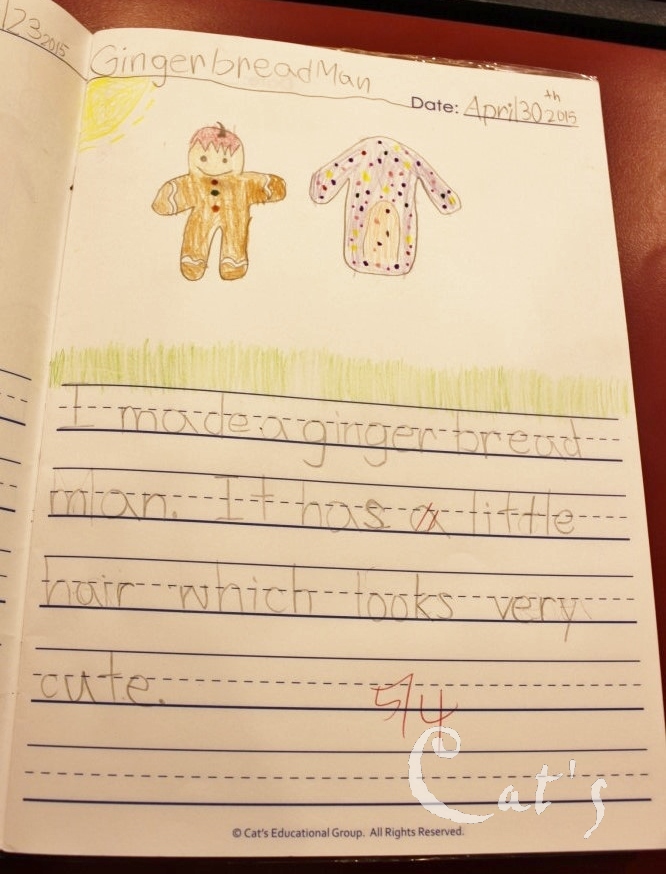 /23 2015
GingerbreadMan
Date: April 30th 2015
I made a ginger bread
man. It has a little
hair which looks very
cute.
5/4
Cat's
© Cat's Educational Group. All Rights Reserved.